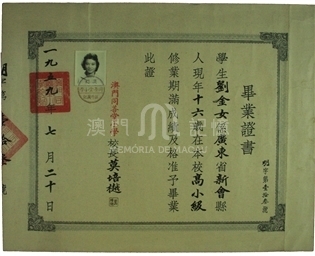 畢業證書
學生劉金女係廣東省新會縣
人現年十六歲在本校高小級
修業期滿成績及格准予畢業
此證
澳門同善
學校長莫培樾
一九五九年七月二十日
澳門記憶
MEMÓRIA DE MACAU